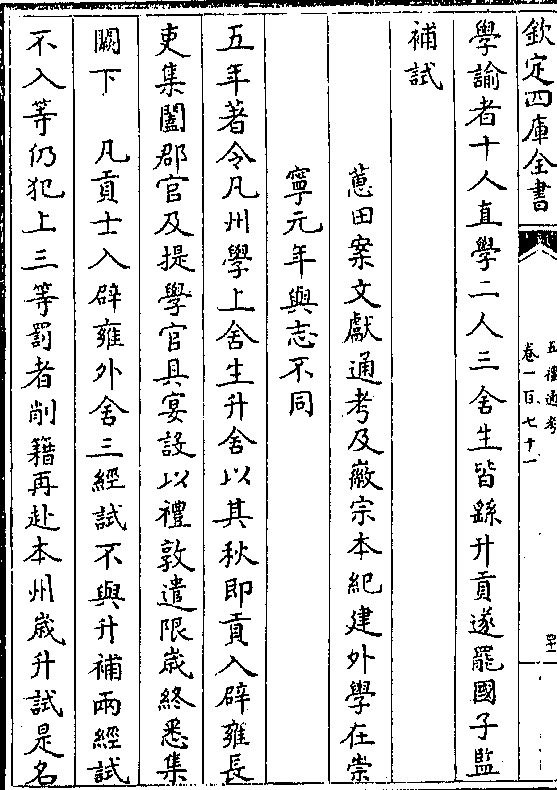 欽定四庫全書
五禮通考
卷一百七十一
四十一
學諭者十人直學二人三舍生皆繇升貢遂罷國子監
補試
蕙田案文獻通考及徽宗本紀建外學在崇
寧元年與志不同
五年著令凡州學上舍生升舍以其秋即貢入辟雍長
吏集闔郡官及提學官具宴設以禮敦遣限歲終悉集
闕下　凡貢士入辟雍外舍三經試不與升補兩經試
不入等仍犯上三等罰者削籍再赴本州歲升試是名